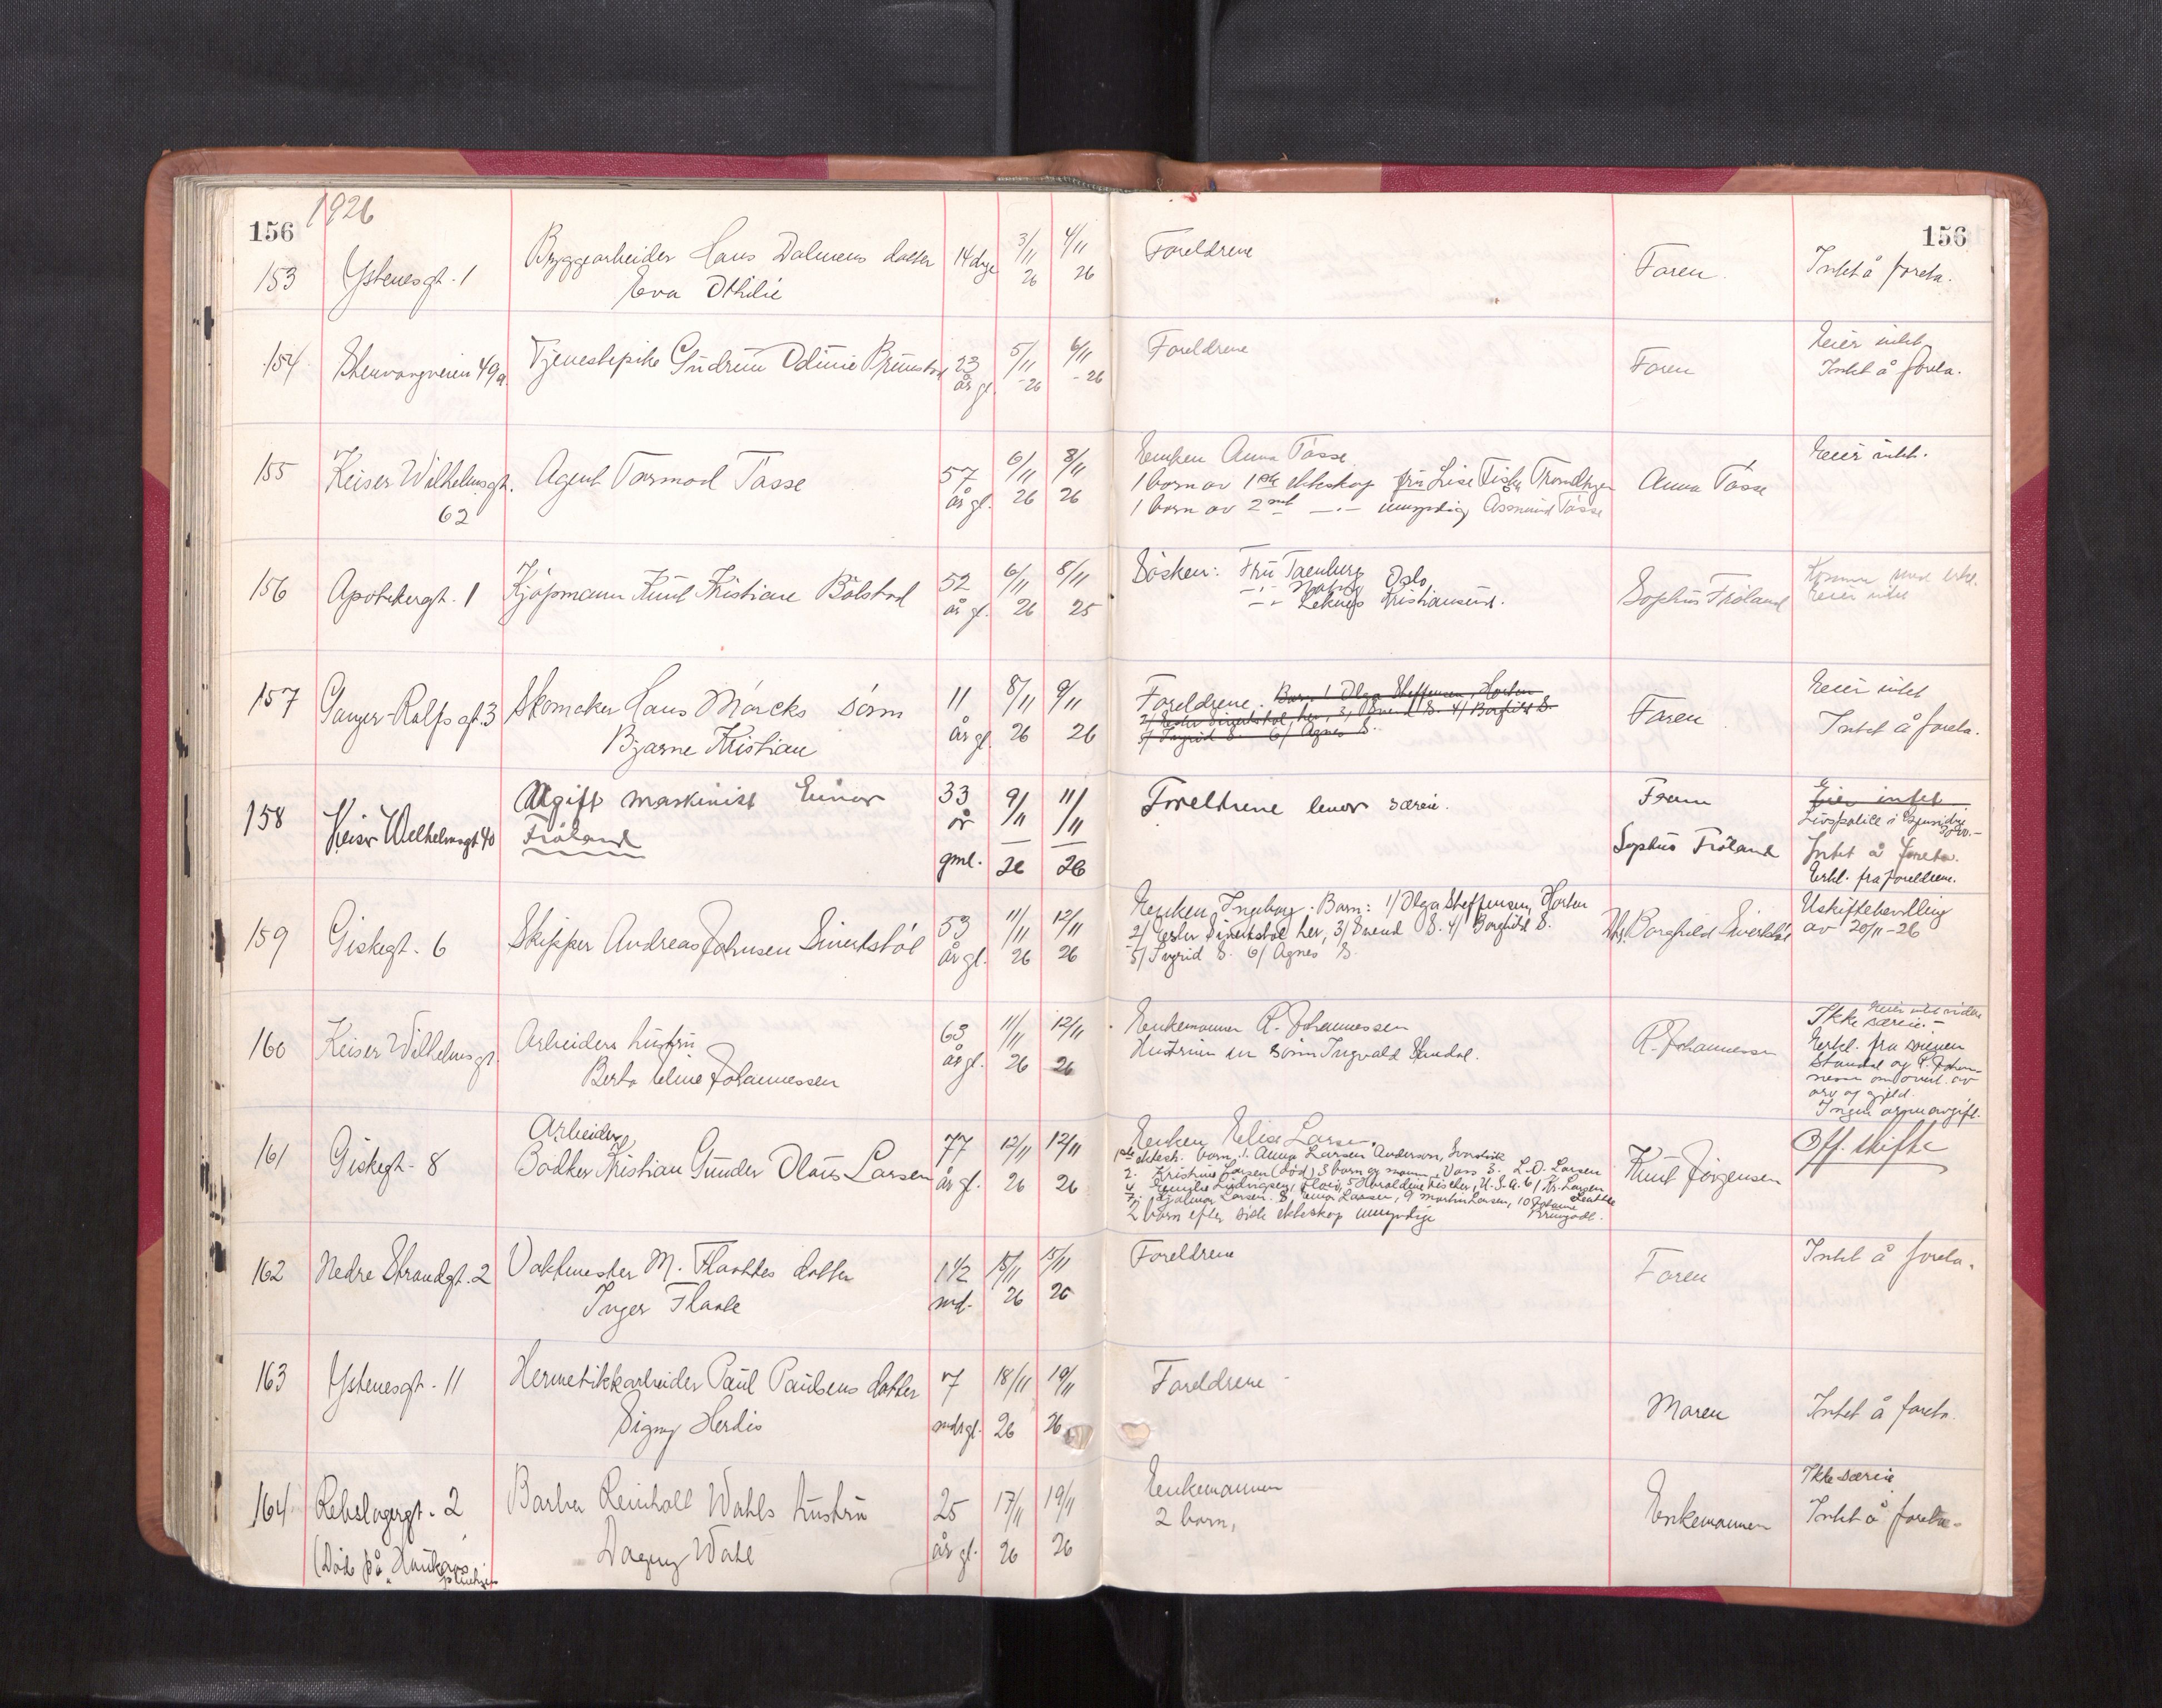 156
1926
156
153
Ystenesgt. 1
Byggearbeider Hans Dalmens datter
Eva Othilie
14 dage
3/11
26
4/11
26
Foreldrene
Faren.
Intet å foreta.
154
49a.
Tjenestepike Gudrun Odine Brunstad
23
år gl.
5/11
-26
6/11
-26
Foreldrene
Faren
Eier intet
Intet å foreta.
155
Keiser Wilhelmsgt.
62
Agent Tormod Tåsse
57
år gl.
6/11
26
8/11
26
Enken Anna Tåsse
1 barn av 1ste ekteskap fru Lise Trondhjem
1 barn av 2net —.— umyndig Åsmund Tåsse
Anna Tåsse
Eier intet.
156
Apotekergt. 1
Kjöpmann Knut Kristian Bölstad
52
år gl.
6/11
26
8/11
25
Bösken: Fru Oslo,
—"— 
—"— Leknes Kristiansund.
Sophus Fröland
Kommer med erkl.
Eier intet
157
Ganger-Rolfs gt. 3
Skomaker Hans Mörcks sönn
Bjarne Kristian
11
år gl.
8/11
26
9/11
26
Foreldrene. Barn 1 Olga Steffensen, Horten
2/ Sivertstöl, her, 3/ Svend S. 4/ Borghild S.
5/ Ingrid S. 6/ Agnes S.
Faren
Eier intet
Intet å foreta.
158
Keiser Wilhelmsgt 40
Ugift maskinist Einar
Fröland
33
år
gml.
9/11
26
11/11
26
Foreldrene lever særeie.
Faren
Sophus Fröland
Eier intet
Livspolice i
Intet å foreta.
Erkl. fra foreldrene.
159
Giskegt. 6
Skipper Andreas Johnsen Sivertstöl
53
år gl.
11/11
26
12/11
26
Enken Ingeborg. Barn: 1/ Olga Steffensen, Horten
2/ Sivertstöl her, 3/ Svend S. 4/ Borghild S.
5/ Ingrid S. 6/ Agnes S.
Borghild Sivertstöl
Uskiftebevilling
av 20/11-26
160
Keiser Wilhelmsgt.
Arbeiders hustru
Berte Eline Johannessen
63
år gl.
11/11
26
12/11
26
Enkemannen R. Johannessen
Hustruen en sönn Ingvald Standal.
R. Johannessen
Eier intet videre
Ikke særeie.-
Erkl. fra sönnen
Standal og R. Johan-
nessen om overt. av
arv og gjeld.
Ingen arveavgift.
161
Giskegt- 8
Arbeider,
Bödker Kristian Gunder Olaus Larsen
77
år gl.
12/11
26
12/11
26
Enken Elise Larsen.
1ste ektesk. barn, 1. Anna Larsen Anderson,
2. Kristine Larsen (död) 3 barn og mann, Voss 3. L. O. Larsen
4. Emilie Ludvigsen, Florö, 5 Haroldine Fischer, U.S.A. 6/ Kr. Larsen
7. Hjalmar Larsen. 8, Einar Larsen, 9 Martin Larsen, 10 Johanne Seattle
2 barn efter siste ekteskap umyndige
Knut Jörgensen
Off. skifte
162
Nedre Strandgt. 2
Vaktmester M. Flaattes datter
Inger Flaate
1 1/2
md.
15/11
26
15/11
26
Foreldrene
Faren
Intet å foreta.
163
Ystenesgt. 11
Hermetikkarbeider Paul Paulsens datter
Signy Herdis
7
mdr gl.
18/11
26
19/11
26
Foreldrene
Moren
Intet å foreta.
164
Rebslagergt. 2
(Död på Haukeras
Barber Reinholt Wahls hustru
Dagny Wahl
25
år gl.
17/11
26
19/11
26
Enkemannen
2 barn,
Enkemannen
Ikke særeie.
Intet å foreta.